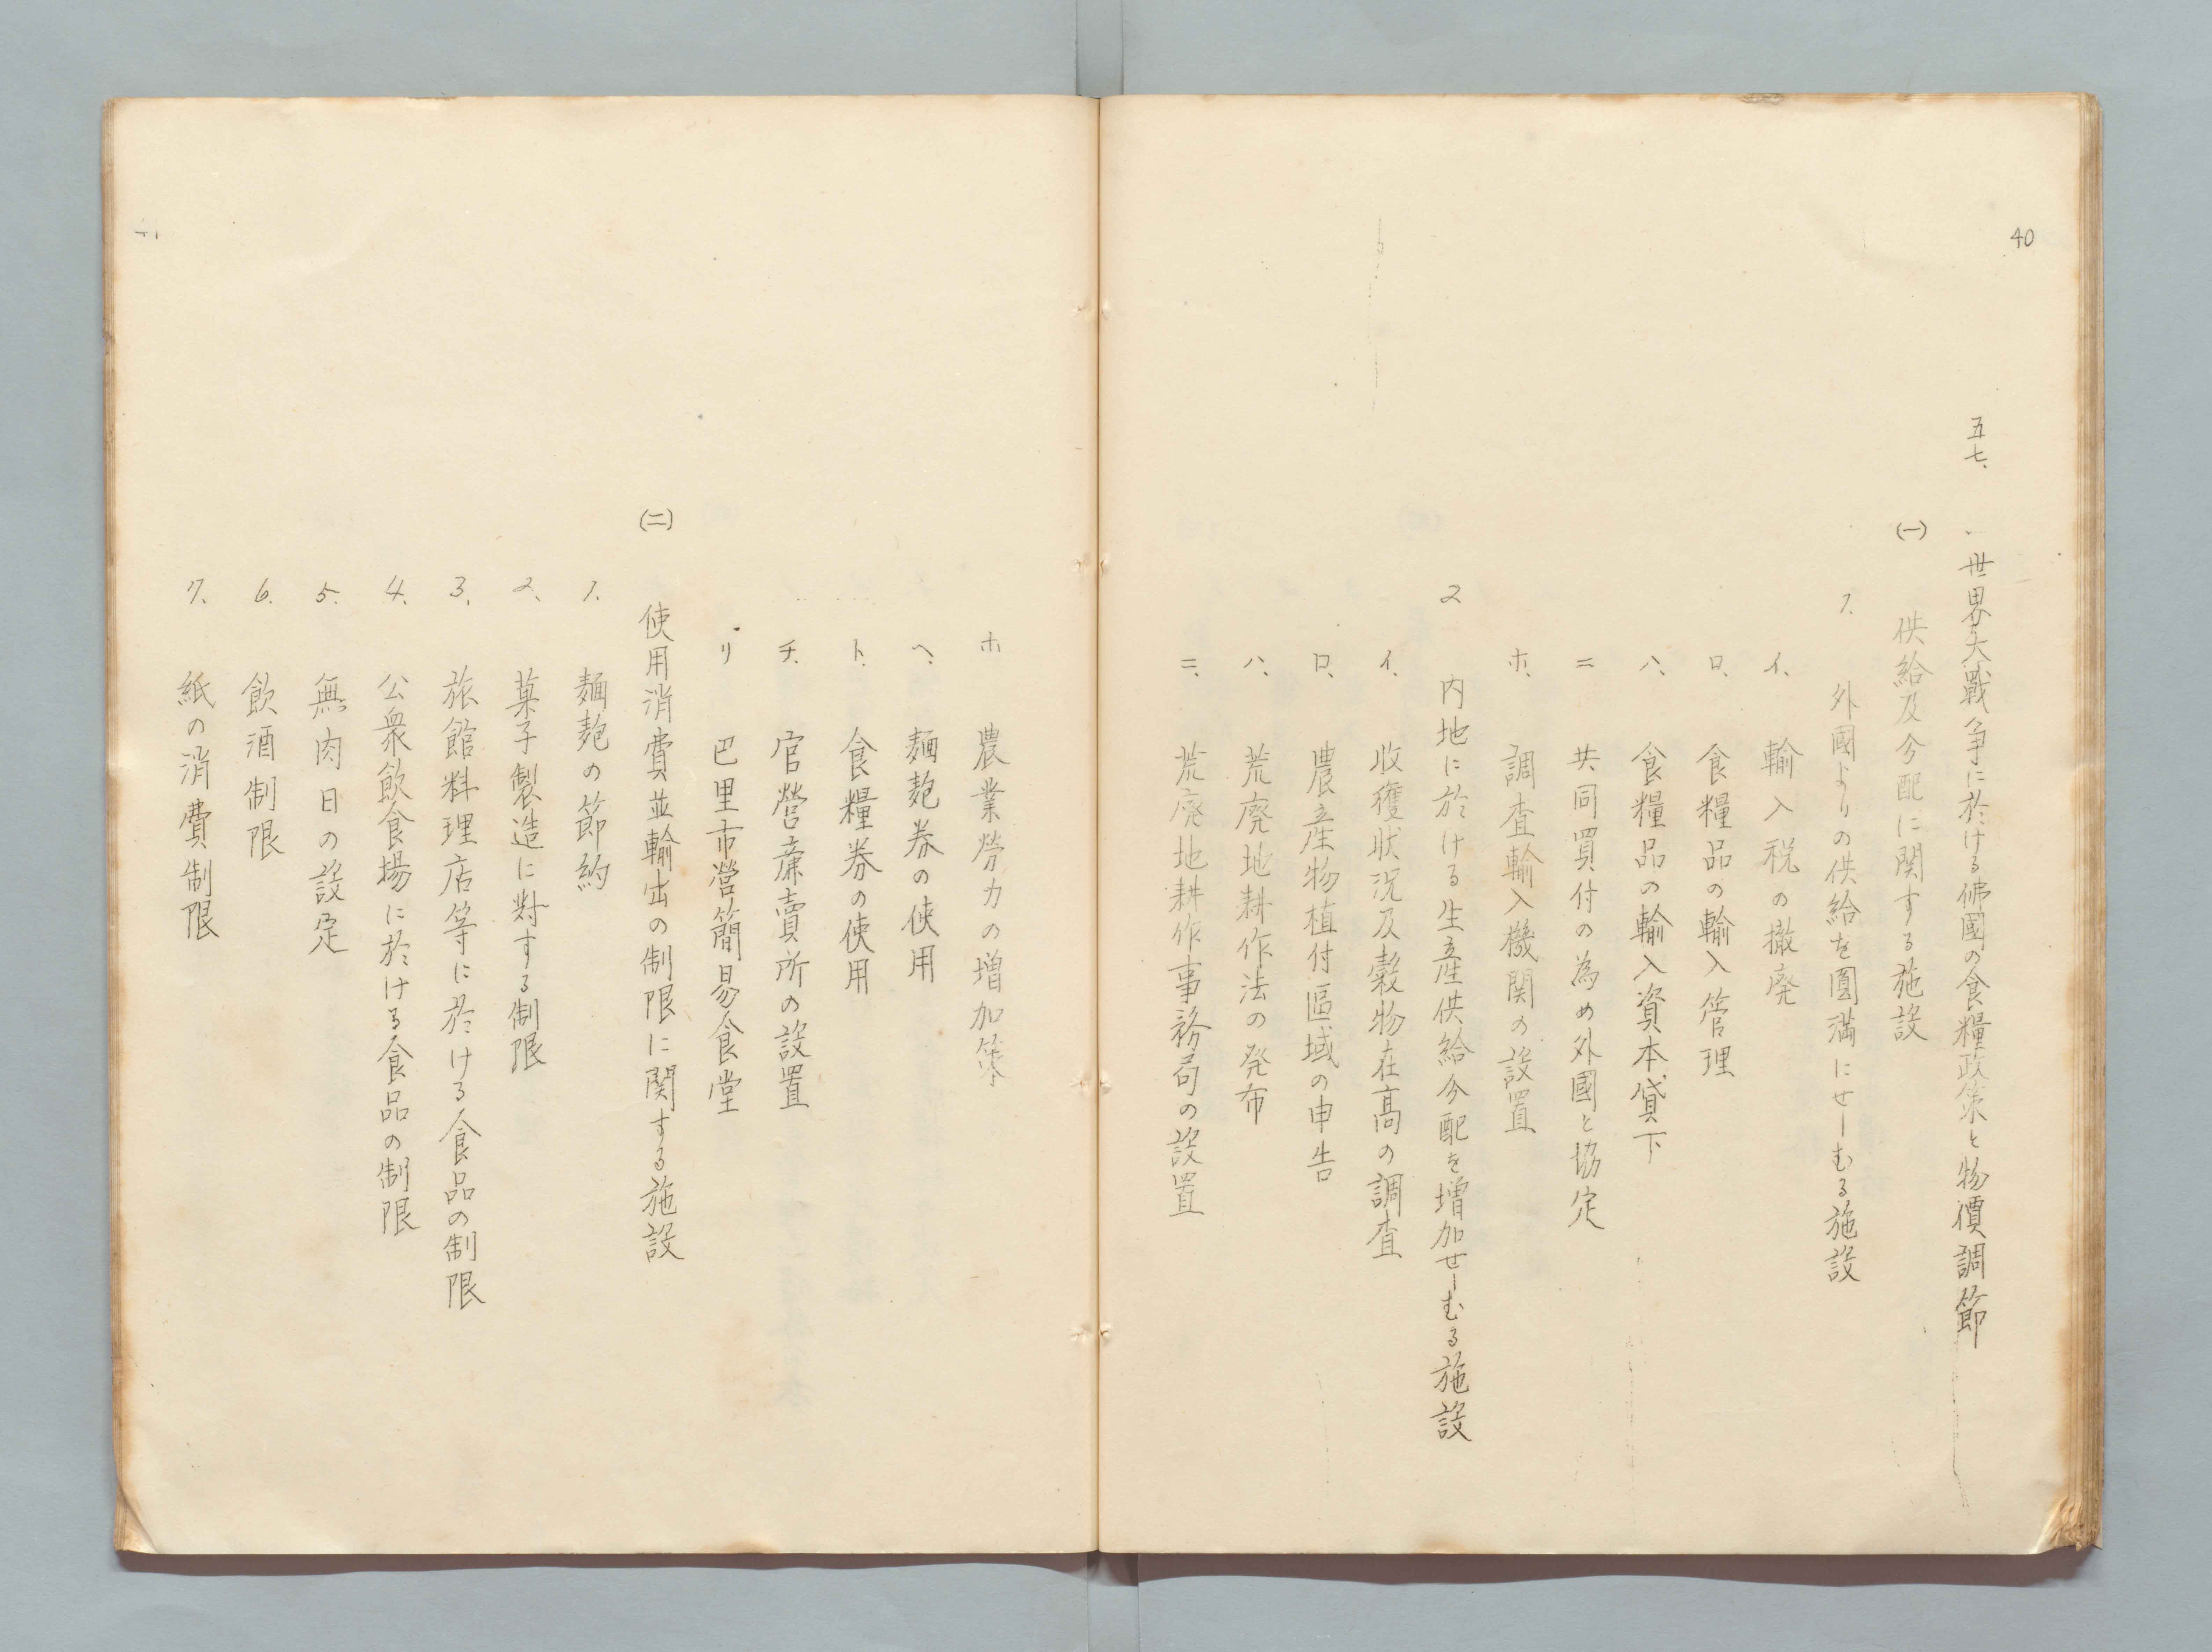 40
五七、 世界大戰争に於ける佛國の食糧政策と物價調節
(一) 供給及分配に関する施設
1. 外國よりの供給を圓満にせしむる施設
イ、 輸入税の撤廃
ロ、 食糧品の輸入管理
ハ、 食糧品の輸入資本貸下
ニ 共同買付の為め外國と協定
ホ、 調査輸入機関の設置
2 内地に於ける生産供給分配を増加せしむる施設
イ、 收穫状況及穀物在高の調査
ロ、 農産物植付區域の申告
ハ、 荒廃地耕作法の発布
ニ、 荒廃地耕作事務局の設置
ホ 農業勞力の増加策
ヘ、 麺麭券の使用
ト、 食糧券の使用
チ、 官營廉賣所の設置
リ 巴里市營簡易食堂
(二) 使用消費並輸出の制限に関する施設
1. 麺麭の節約
2、 菓子製造に對する制限
3、 旅館料理店等に於ける食品の制限
4、 公衆飲食場に於ける食品の制限
5. 無肉日の設定
6. 飲酒制限
7、 紙の消費制限
41